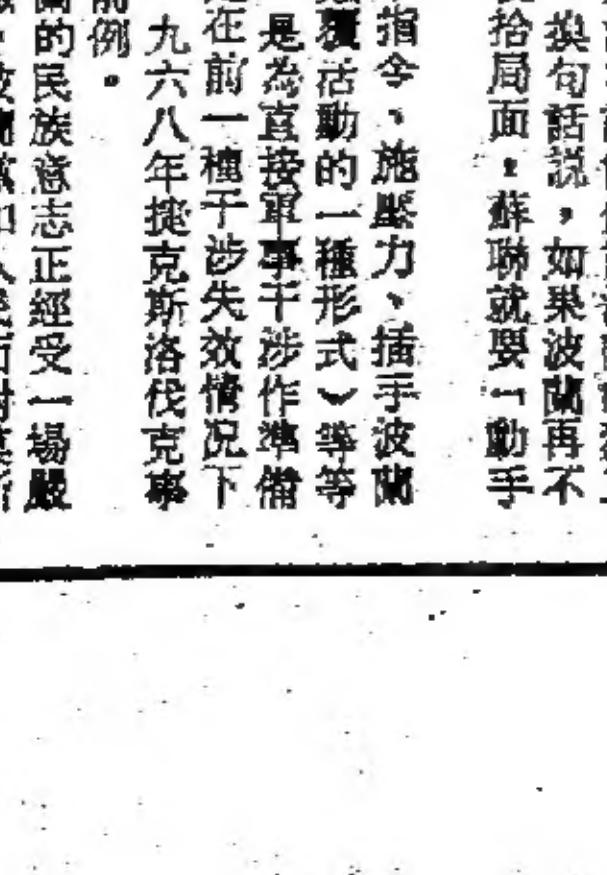 換句話說，如果波蘭再不
拾局面，蘇聯就要「動手
指令、施壓力、插手波蘭
覆活動的一種形式）等等
是為直接軍事干涉作準備
在前一種干涉失效情况下
九六八年捷克斯洛伐克事
前例。
的民族意志正經受一場嚴